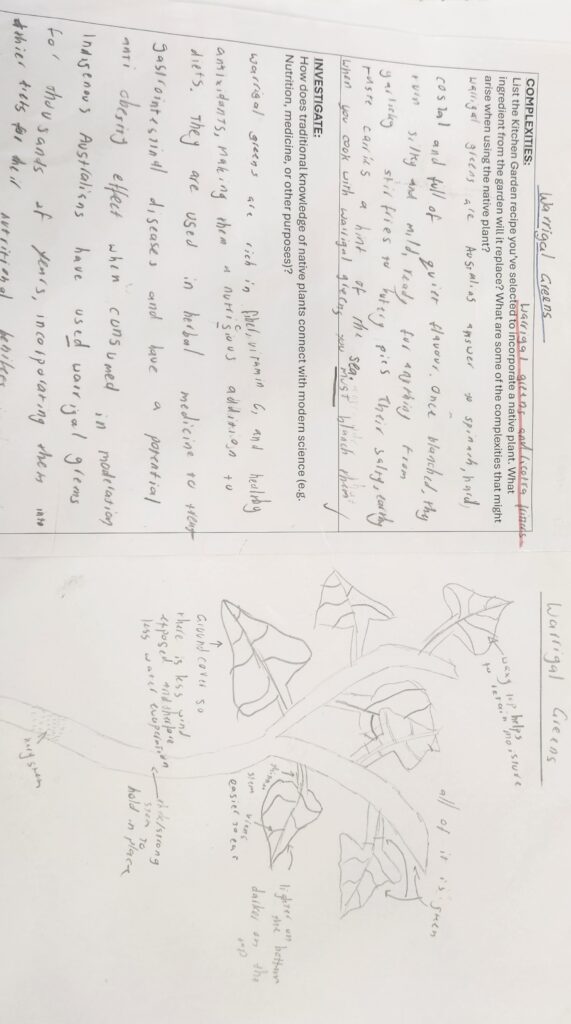 Warrigal Greens
COMPLEXITIES:
List the Kitchen Garden recipe you've selected to incorporate a native plant. What
ingredient from the garden will it replace? What are some of the complexities that might
arise when using the native plant?
warrigal greens and
warrigal greens are Australias answer to spinach, hard,
costal and full of quiet flavour. Once blanched, thy
turn silky and mild, ready for anything from
garlicky stir fries to buttery pies Their salty, earthy
taste carries a hint of the sea.
when you cook with warrigal greens you must blanch them
INVESTIGATE:
How does traditional knowledge of native plants connect with modern science (e.g.
Nutrition, medicine, or other purposes)?
warrigal greens are rich in fibel, vitamin C, and healthy
antixidants, making them a nutricious addition to
diets. They are used in herbal medicine to treat
gastrointestinal diseases and have a potential
anti obesiny effect when consumed in moderation
Indigenous Australians have used warrigal grems
for thousands of years, incorporating them into
their
nutritional
Warrigal Greens
waxy lip helps
to retain moisture
all of it is green
Ground cover so
there is less wind
exposed and therfore
less water evaporation
thick/strong
stem to
hold in place
stem
easier to eat
lighter on
the bottom
darker on the
top
stem